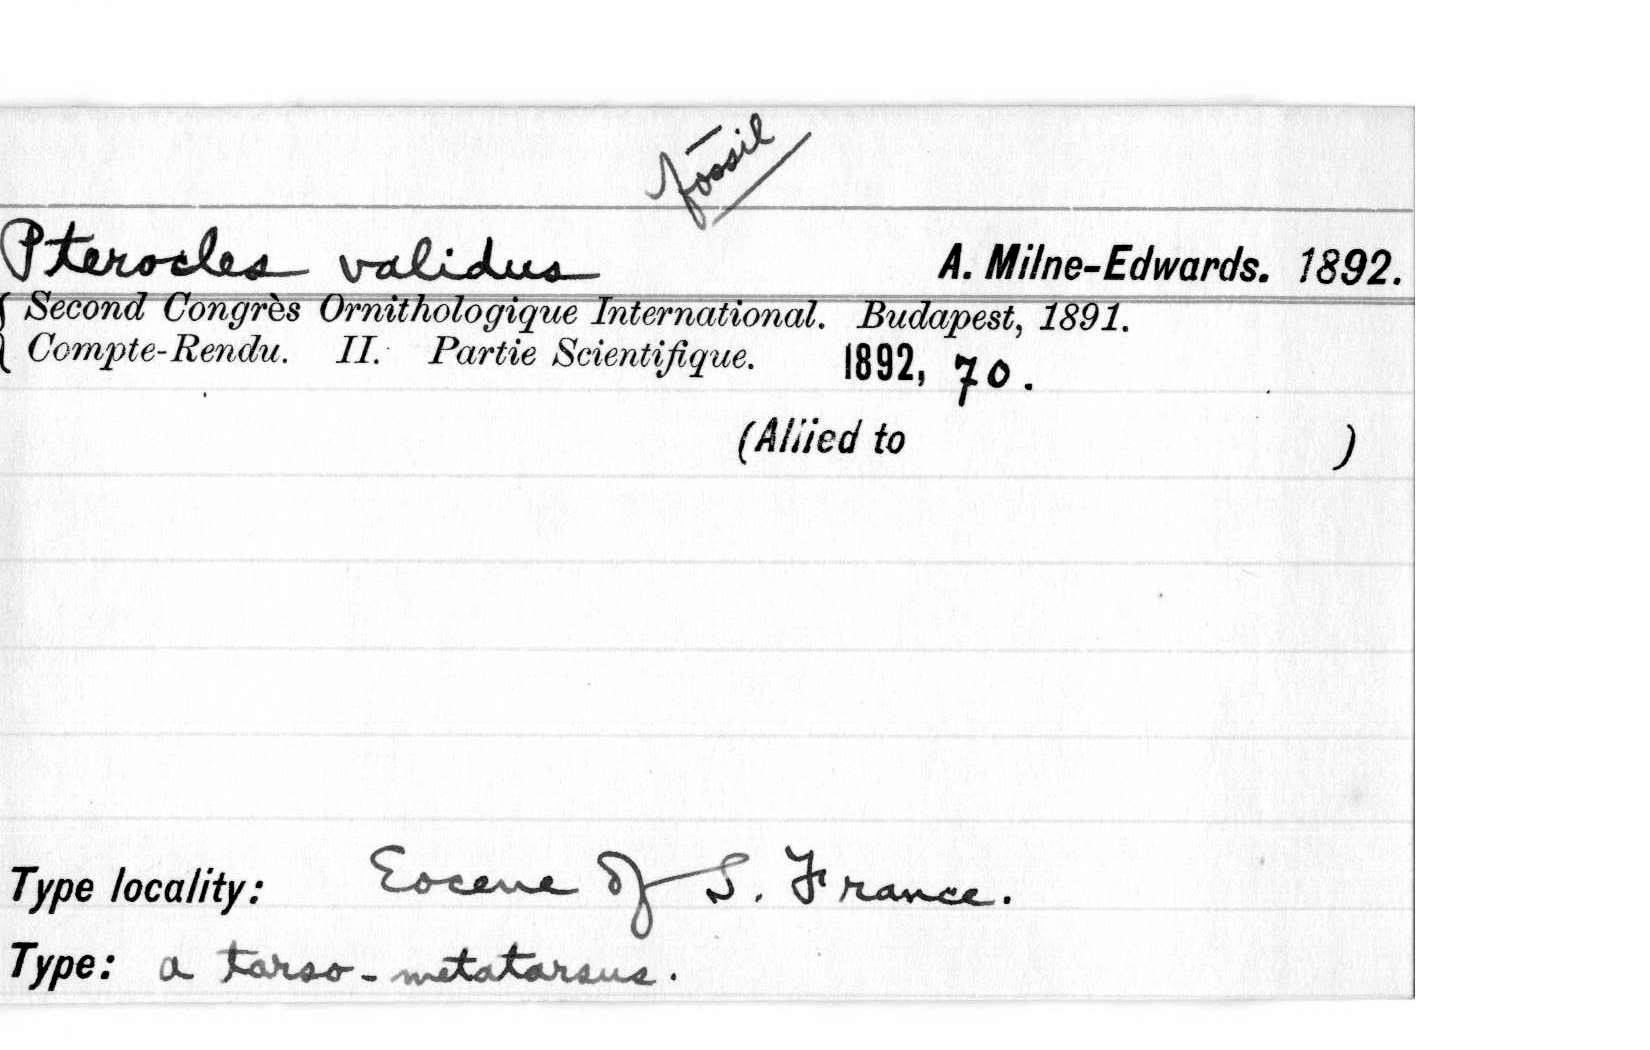 fossil
Pterocles validus A. Milne-Edwards. 1892.
Second Congrès Ornithologique International. Budapest, 1891.
Compte-Rendu. II. Partie Scientifique. 1892, 70.
(Allied to )
Type locality: Eocene of S. France.
Type: a tarso-metatarsus.